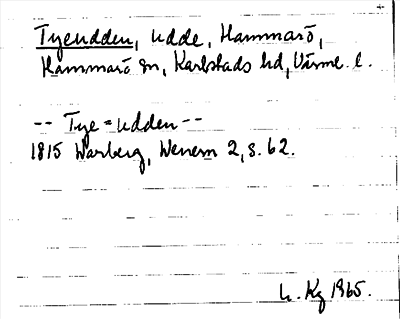 Tyeudden, udde, Hammarö,
Hammarö sn, Karlstads hd, Värml. l.
-- Tye=udden --
1815 Warberg, Wenern 2, s. 62.
L. Kg 1965.